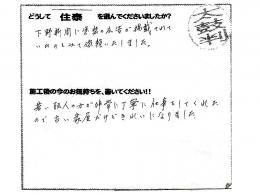 どうして 住泰 を選んでくださいましたか？
下野新聞に住泰の広告が掲載されて
いたのをみて依頼いたしました。
大鼓判
施工後の今のお気持ちを、書いてください!!
若い職人の方が非常に丁寧に仕事をしてくれた
ので古い家屋だけどきれいになりました